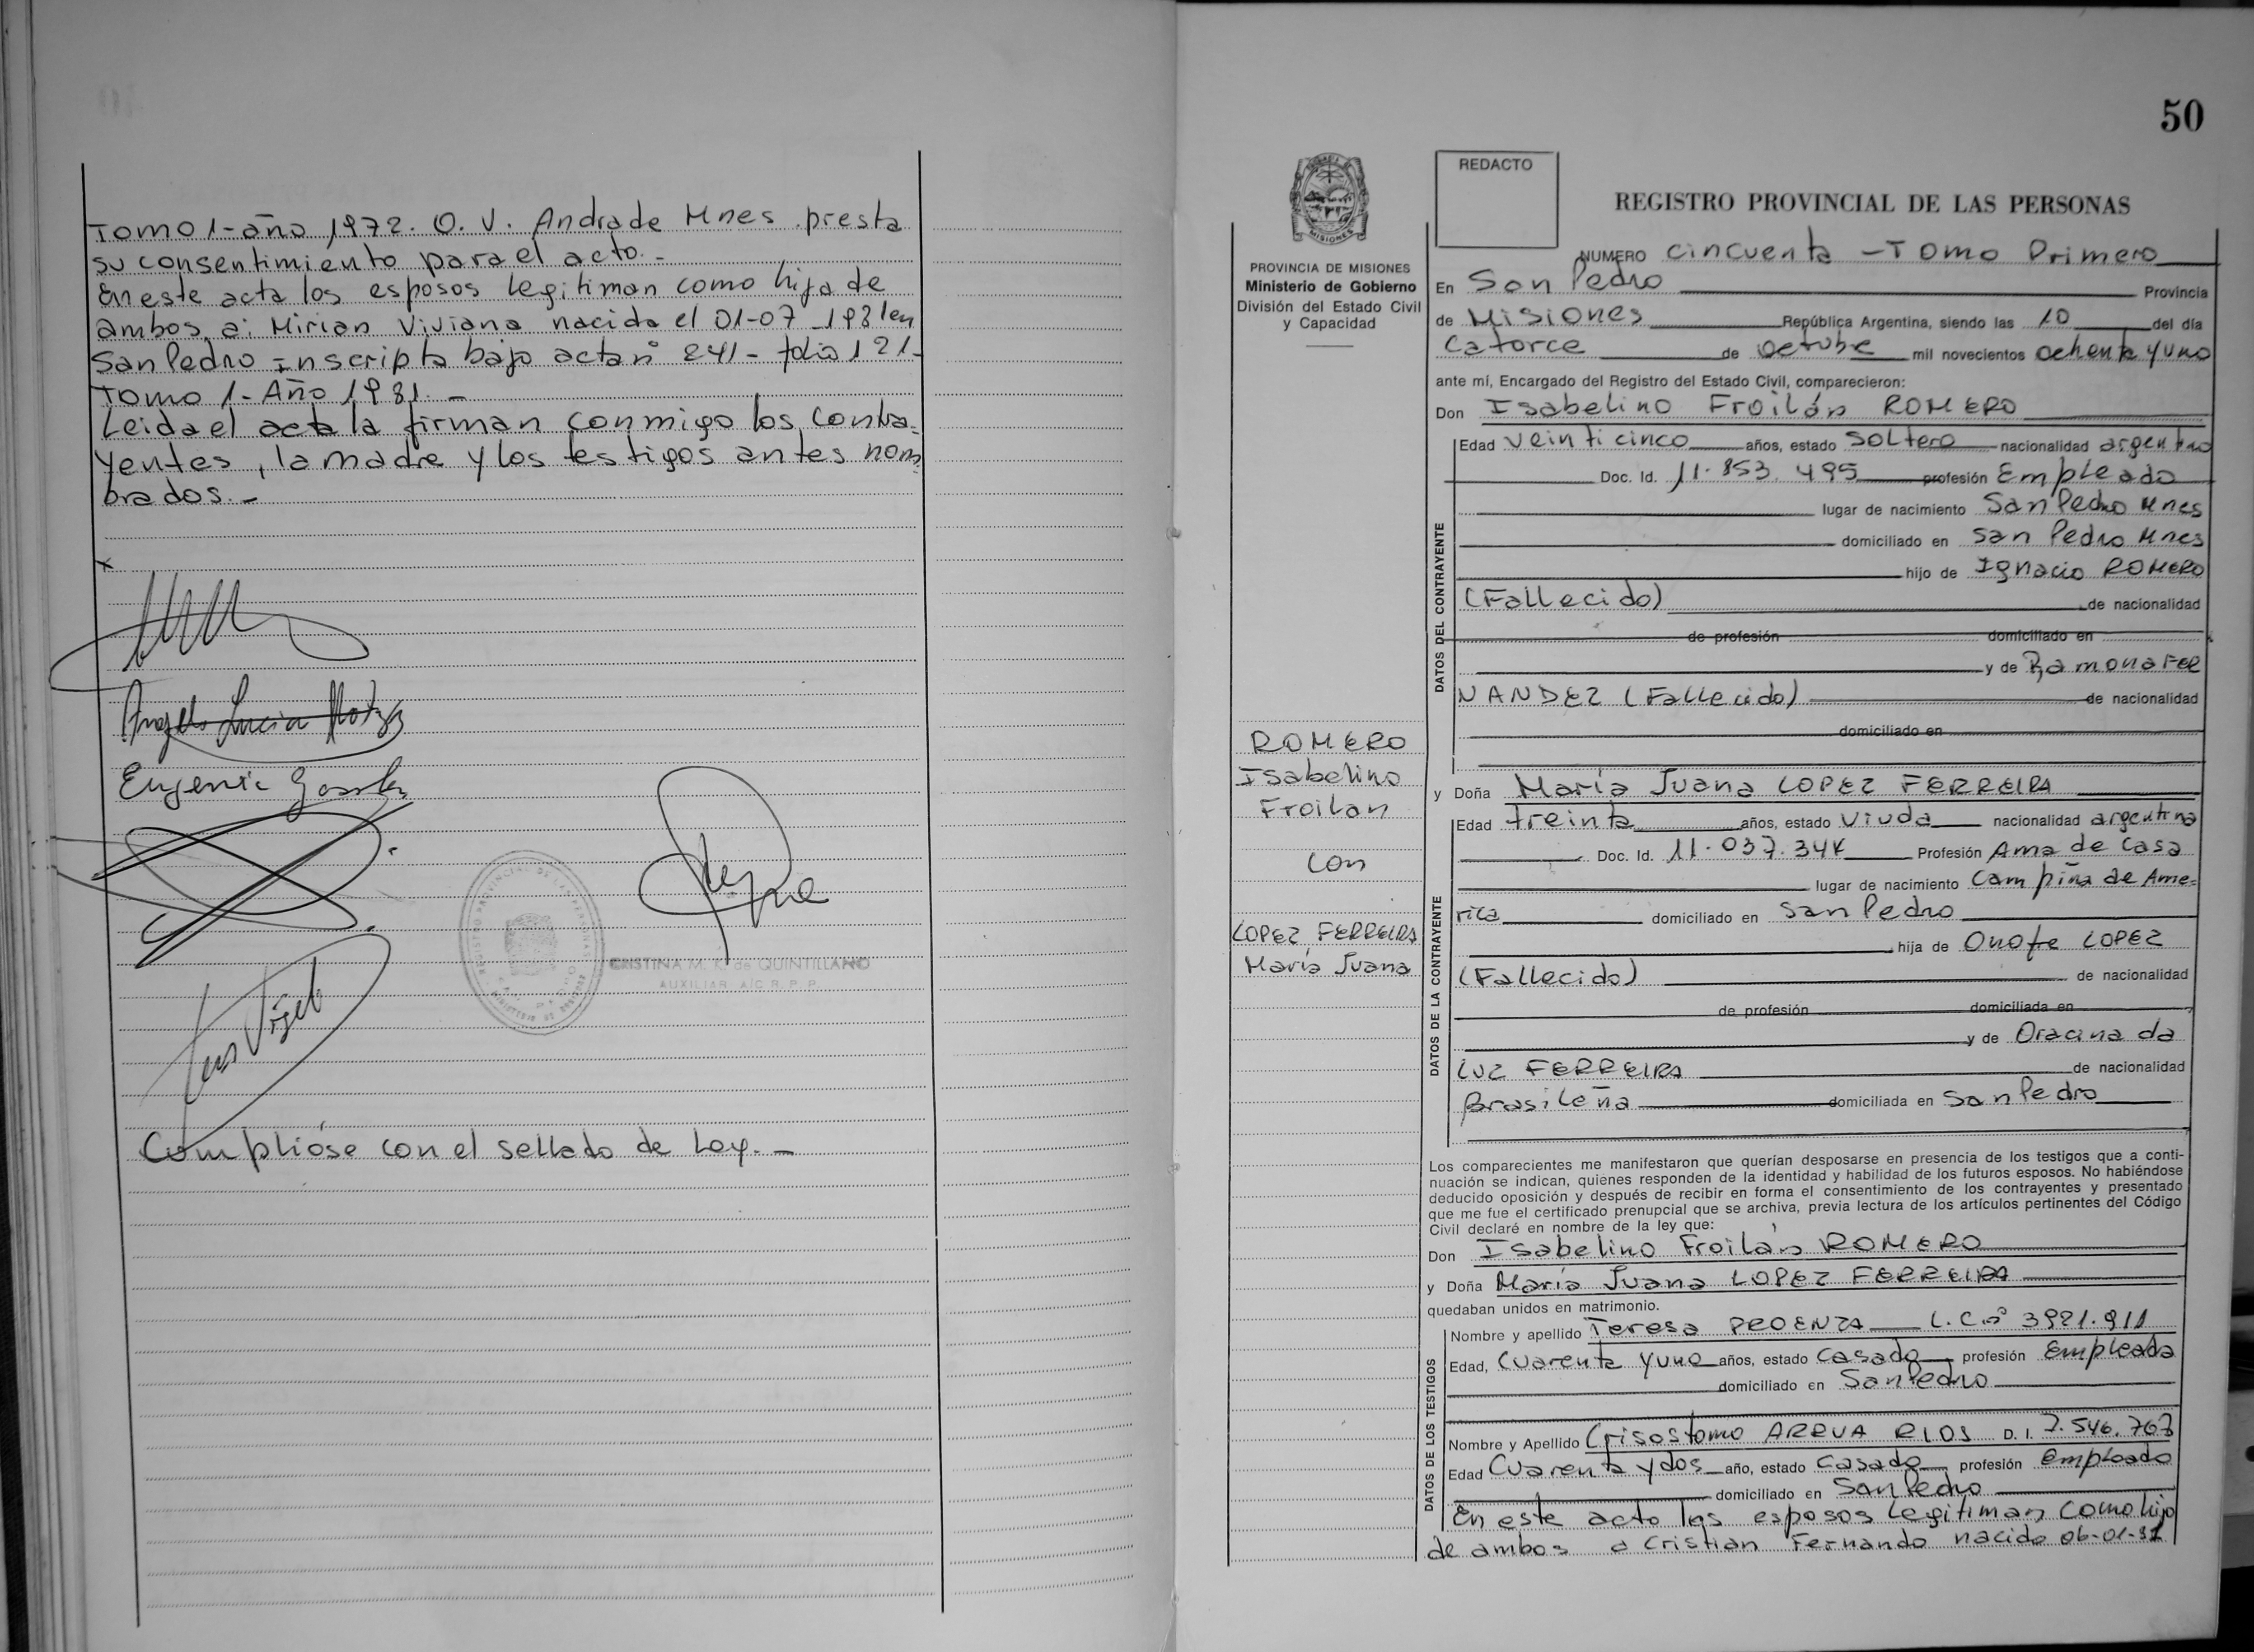 Tomo 1-año 1972. O. V. Andrade Mnes presta
su consentimiento para el acto.-
En este acta los esposos legitiman como hija de
ambos a: Mirian Viviana nacida el 01-07-1981 en
San Pedro inscripta bajo acta nº 241- folio 121-
Tomo 1- Año 1981.-
Leida el acta la firman conmigo los contra-
yentes, la madre y los testigos antes nom-
brados.-
x
Eugenia
CRISTINA M. K. de QUINTILLANO
AUXILIAR A/C R.P.P.
Luis Vigel
Cumplióse con el sellado de Ley.-
50
REDACTO
REGISTRO PROVINCIAL DE LAS PERSONAS
MISIONES
PROVINCIA DE MISIONES
Ministerio de Gobierno
División del Estado Civil
y Capacidad
ROMERO
Isabelino
Froilan
con
LOPEZ FERREIRA
María Juana
NUMERO cincuenta - Tomo Primero
En San Pedro Provincia
de Misiones República Argentina, siendo las 10 del día
Catorce de octubre mil novecientos ochenta y uno
ante mí, Encargado del Registro del Estado Civil, comparecieron:
Don Isabelino Froilán ROMERO
DATOS DEL CONTRAYENTE
Edad veinticinco años, estado soltero nacionalidad argentino
Doc. Id. 11.853.495 profesión Empleado
lugar de nacimiento San Pedro Mnes
domiciliado en San Pedro Mnes
hijo de Ignacio ROMERO
(Fallecido) de nacionalidad
de profesión domiciliado en
y de Ramona FER
NANDEZ (Fallecido) de nacionalidad
domiciliado en
y Doña María Juana LOPEZ FERREIRA
DATOS DE LA CONTRAYENTE
Edad treinta años, estado viuda nacionalidad argentina
Doc. Id. 11.037.344 Profesión Ama de casa
lugar de nacimiento Campiña de Ame-
rica domiciliado en San Pedro
hija de Onofre LOPEZ
(Fallecido) de nacionalidad
de profesión domiciliada en
y de Oracina da
LUZ FERREIRA de nacionalidad
Brasileña domiciliada en San Pedro
Los comparecientes me manifestaron que querían desposarse en presencia de los testigos que a conti-
nuación se indican, quienes responden de la identidad y habilidad de los futuros esposos. No habiéndose
deducido oposición y después de recibir en forma el consentimiento de los contrayentes y presentado
que me fue el certificado prenupcial que se archiva, previa lectura de los artículos pertinentes del Código
Civil declaré en nombre de la ley que:
Don Isabelino Froilán ROMERO
y Doña María Juana LOPEZ FERREIRA
quedaban unidos en matrimonio.
DATOS DE LOS TESTIGOS
Nombre y apellido Teresa PROENZA L.C.nº 3921.911
Edad, Cuarenta y uno años, estado casado profesión Empleada
domiciliado en San Pedro
Nombre y Apellido Crisostomo ARRUA RIOS D. I. 7.546.767
Edad Cuarenta y dos año, estado casado profesión empleado
domiciliado en San Pedro
En este acto los esposos legitiman como hijo
de ambos a Cristian Fernando nacido 06-01-